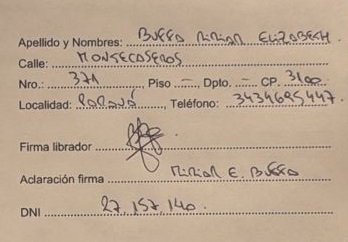 Apellido y Nombres: BUFFA MIRIAN ELIZABETH.
Calle: MONSECASEROS
Nro.: 371 Piso –, Dpto. – CP. 3100
Localidad: PARANÁ, Teléfono: 3434695447.
Firma librador
Aclaración firma MIRIAN E. BUFFA
DNI 27.157.140.